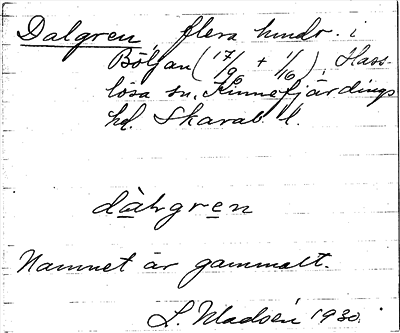 Dalgren, flera hmdr. i
Böljan (17/96 + 1/16), Hass-
lösa sn, Kinnefjärdings
hd. Skarab. l.
dàlgren
Namnet är gammalt.
L. Madsén 1930.